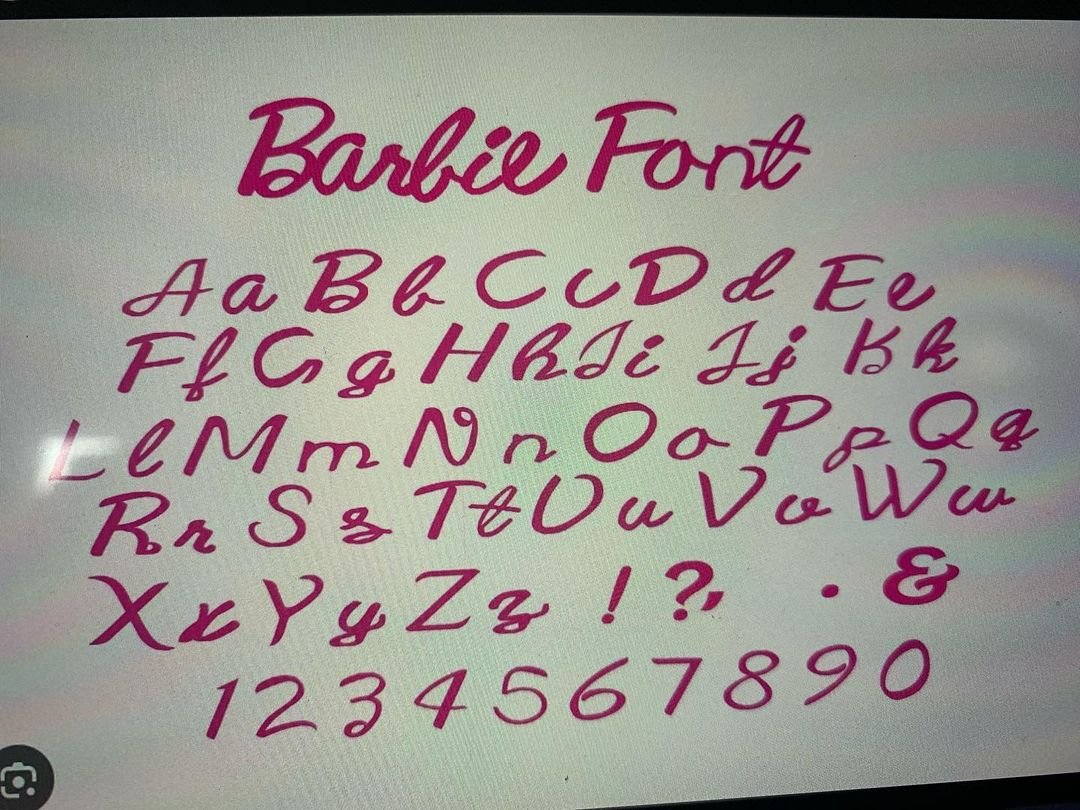 Barbie Font
Aa Bb Cc Dd Ee
Ff Gg Hh Ii Jj Kk
Ll Mm Nn Oo Pp Qq
Rr Ss Tt Uu Vv Ww
Xx Yy Zz ! ?, . &
1234567890